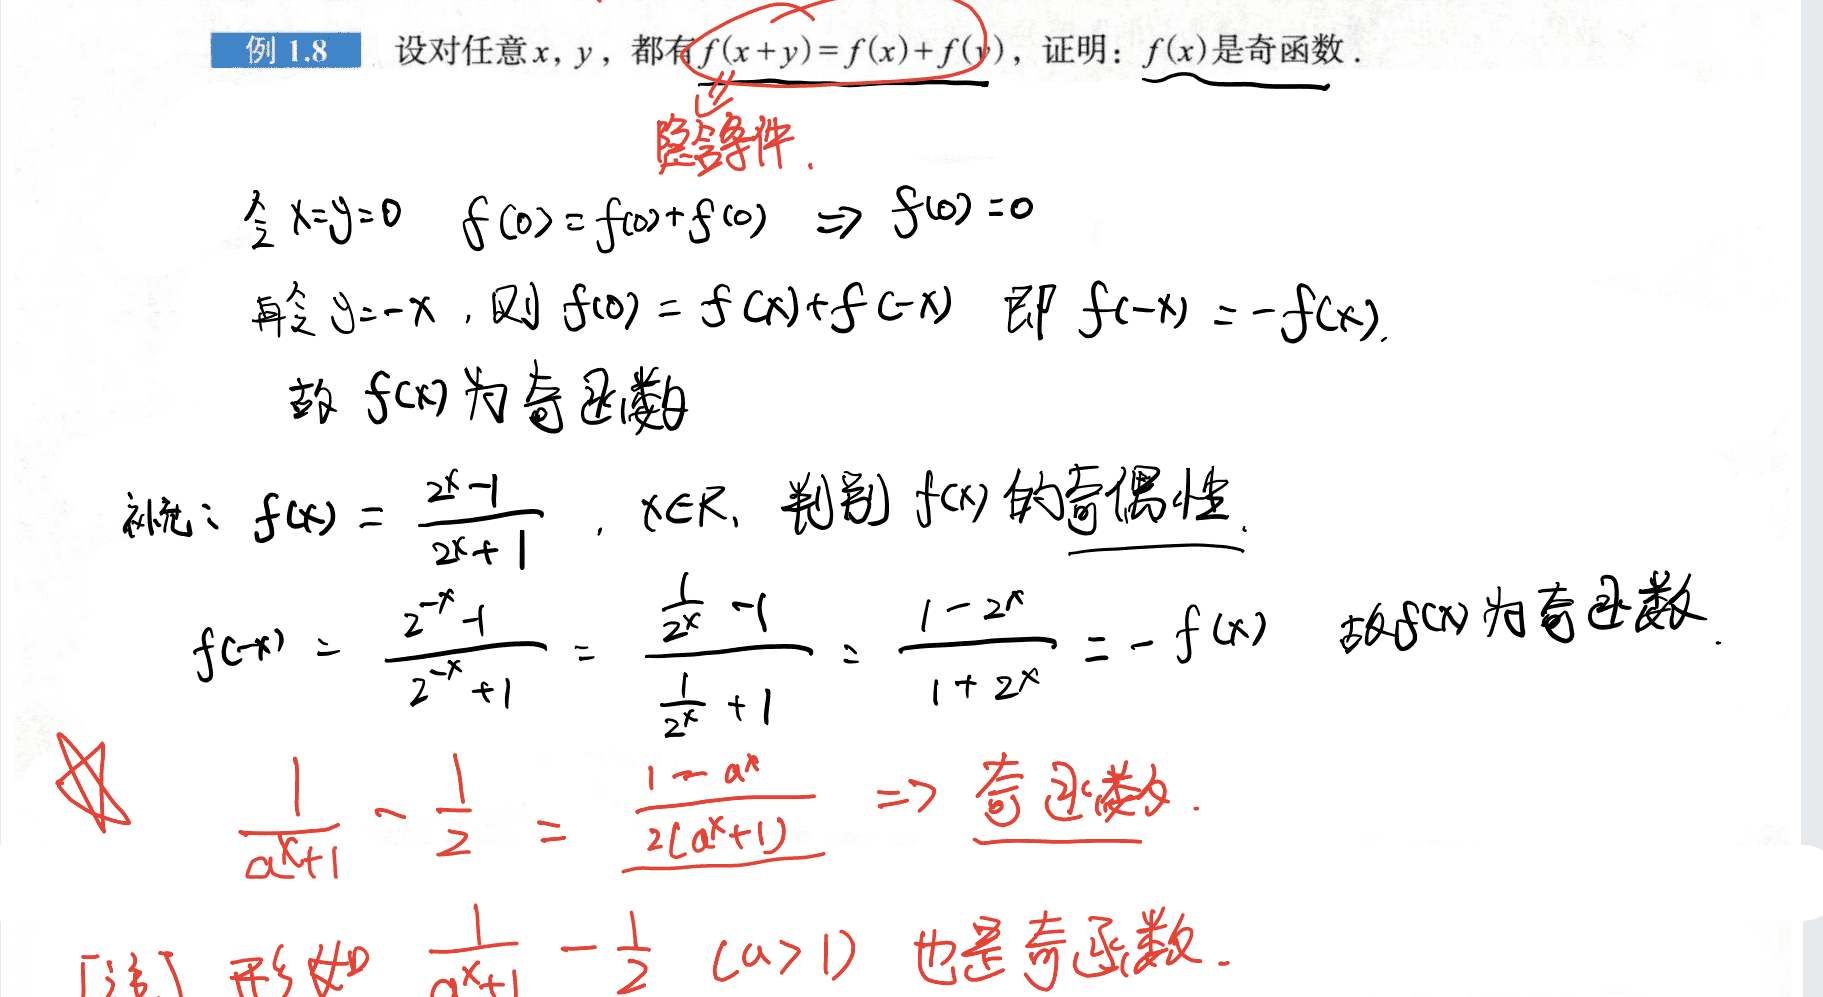 例 1.8 设对任意 x, y，都有 f(x+y)=f(x)+f(y)，证明：f(x)是奇函数.
隐含条件.
令 x=y=0 f(0)=f(0)+f(0) => f(0)=0
再令 y=-x，则 f(0) = f(x)+f(-x) 即 f(-x) = -f(x).
故 f(x) 为奇函数
补充：f(x) = (2^x-1)/(2^x+1), x∈R, 判别 f(x) 的奇偶性.
f(-x) = (2^-x-1)/(2^-x+1) = (1/2^x -1)/(1/2^x +1) = (1-2^x)/(1+2^x) = -f(x) 故f(x)为奇函数.
1/(a^x+1) - 1/2 = (1-a^x)/(2(a^x+1)) => 奇函数.
[注] 形如 1/(a^x+1) - 1/2 (a>1) 也是奇函数.